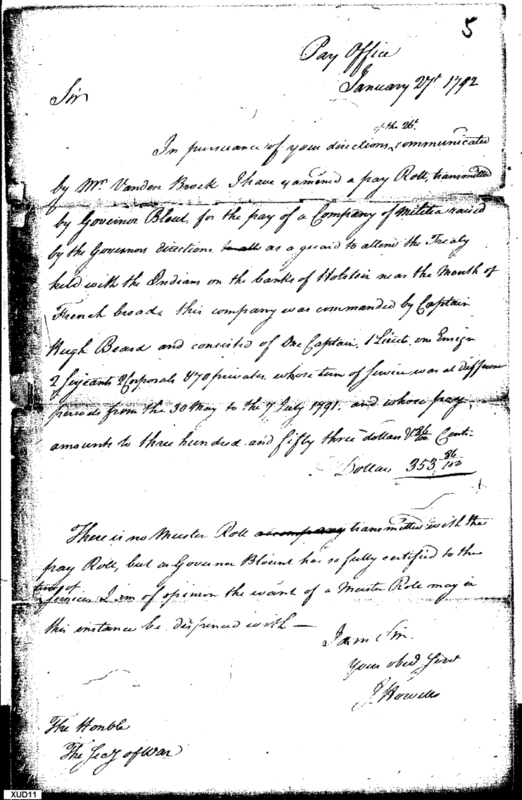 5
Pay Office
January 27th 1792
Sir
In pursuance of your directions of the 26th communicated
by Mr. Vanden Brock I have examined a pay Roll, transmitted
by Governor Blout, for the pay of a Company of Militia raised
by the Governors directions as a guard to attend the Treaty
held with the Indians on the banks of Holstein near the Mouth of
French broad, this company was commanded by Captain
Hugh Beard and consisted of One Captain, 1 Lieut. one Ensign
2 Serjeants 2 Corporals & 70 privates, whose term of Service was at different
periods from the 30 May to the 7 July 1791. and whose pay
amounts to three hundred and fifty three dollars & 36/100 Cents.
Dollars 353 36/100
There is no Muster Roll accompany transmitted with the
pay Roll, but as Governor Blount has so fully certified to the
time of
Services I am of opinion the want of a Muster Role may in
this instance be dispenced with —
I am Sir.
Your obed Servt
J Howell
The Honble
The Secy of War
XUD11